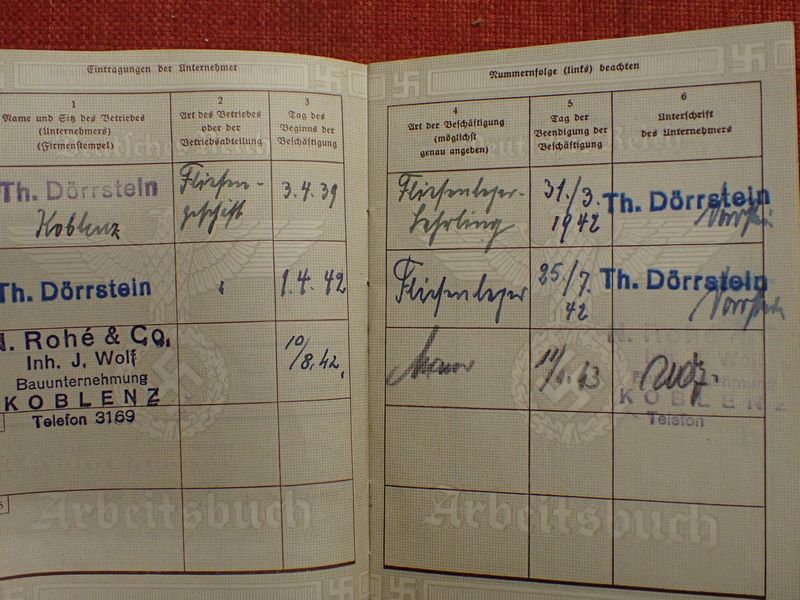 Eintragungen der Unternehmer
1
Name und Sitz des Betriebes
(Unternehmers)
(Firmenstempel)
2
Art des Betriebes
oder der
Betriebsabteilung
3
Tag des
Beginns der
Beschäftigung
Th. Dörrstein
Koblenz
Fliesen-
geschäft
3.4.39
Th. Dörrstein
"
1.4.42
Rohé & Co.
Inh. J. Wolf
Bauunternehmung
KOBLENZ
Telefon 3169
10/8.42.
Arbeitsbuch
Nummernfolge (links) beachten
4
Art der Beschäftigung
(möglichst
genau angeben)
5
Tag der
Beendigung der
Beschäftigung
6
Unterschrift
des Unternehmers
Fliesenleger-
Lehrling
31./3.
1942
Th. Dörrstein
Fliesenleger
25/7.
42
Th. Dörrstein
KOBLENZ
Telefon
Arbeitsbuch